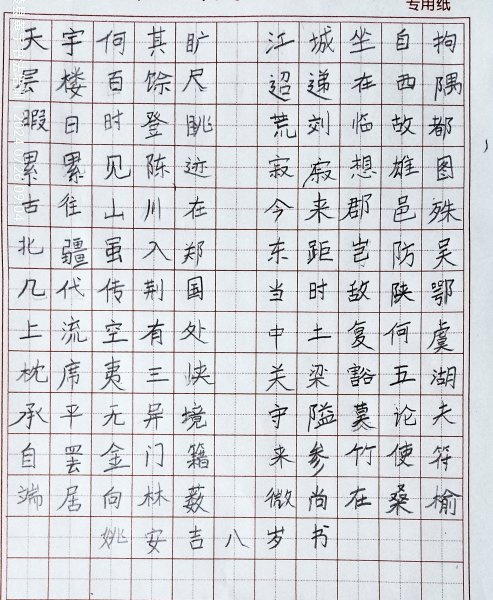 专用纸
天宇何其旷 江城坐自拘
层楼百馀尺 迢递在西隅
暇日时登眺 荒刘临故都
累累见陈迹 寂寂想雄图
古往山川在 今来郡邑殊
北疆虽入郑 东距岂防吴
几代传荆国 当时敌陕鄂
上流空有处 中土复何虞
枕席夷三峡 关梁豁五湖
承平无异境 守隘莫论夫
自罢金门籍 来参竹使符
端居向林薮 微尚在桑榆
姚安吉八岁书